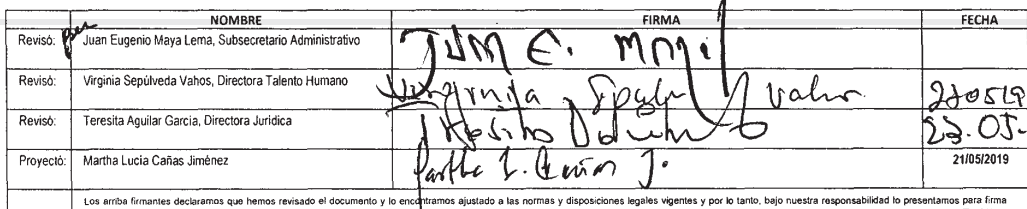 NOMBRE FIRMA FECHA
Revisó: Juan Eugenio Maya Lema, Subsecretario Administrativo JUAN E. MAYA
Revisó: Virginia Sepúlveda Vahos, Directora Talento Humano Virginia Vahos
Revisó: Teresita Aguilar García, Directora Jurídica 23.05-
Proyectó: Martha Lucía Cañas Jiménez Martha L. Cañas J. 21/05/2019
Los arriba firmantes declaramos que hemos revisado el documento y lo encontramos ajustado a las normas y disposiciones legales vigentes y por lo tanto, bajo nuestra responsabilidad lo presentamos para firma